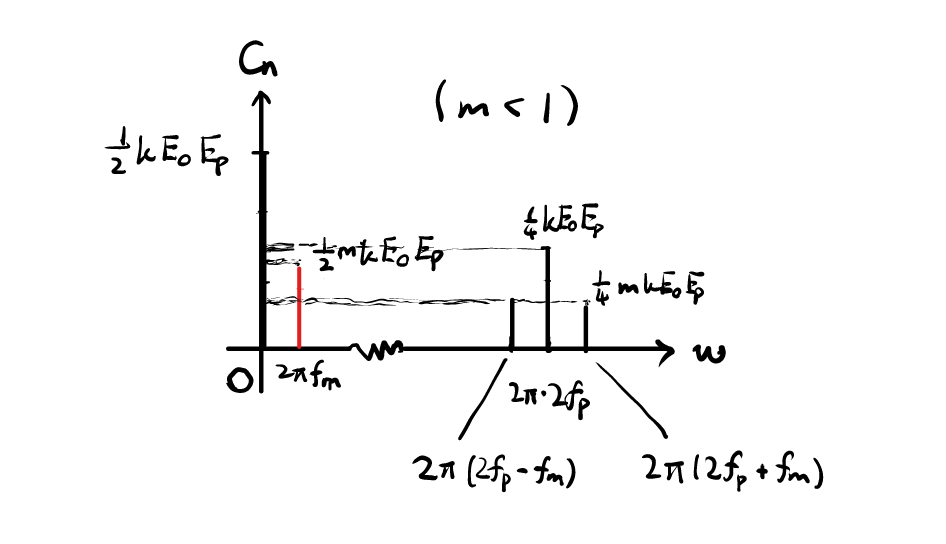 Cn
(m < 1)
½kE₀Eₚ
¼kE₀Eₚ
½mkE₀Eₚ
¼mkE₀Eₚ
O
2πfₘ
2π·2fₚ
ω
2π(2fₚ-fₘ)
2π(2fₚ+fₘ)